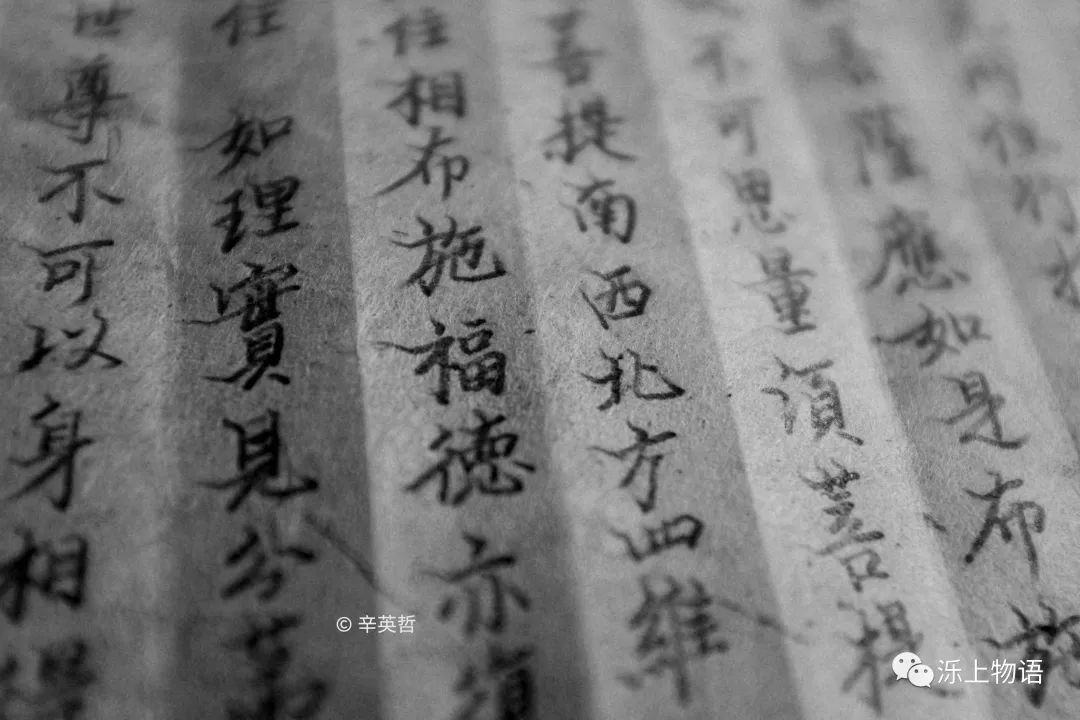 薩應如是布施
不可思量須菩提
菩提南西北方四維
住相布施福德亦
住 如理實見分第
世尊不可以身相得
© 辛英哲
泺上物语